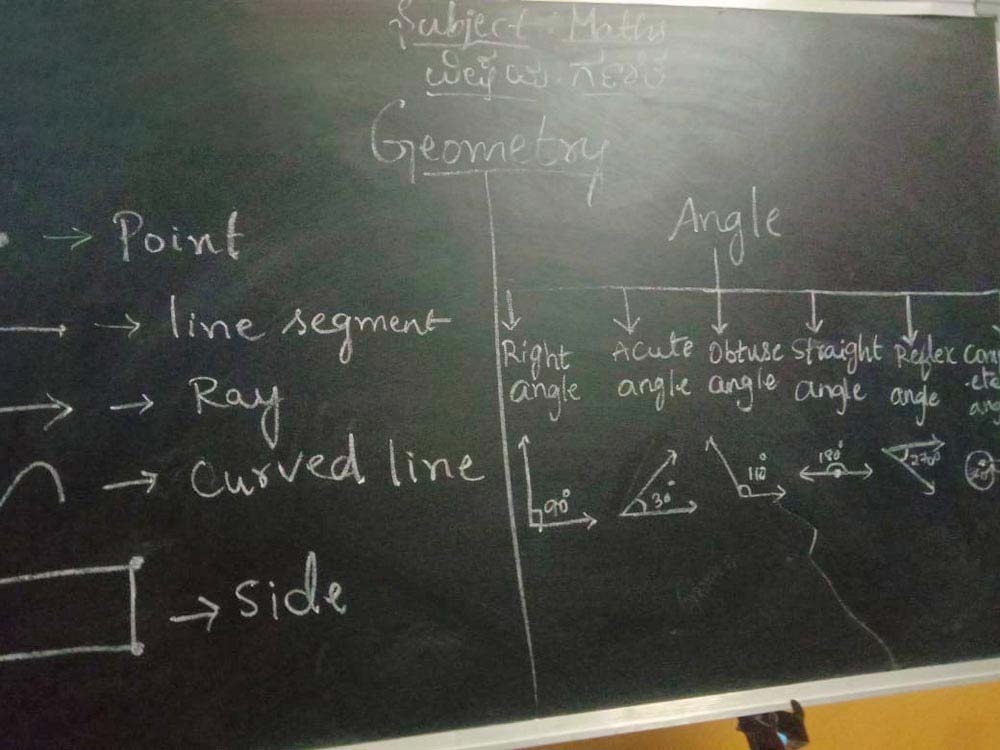 Subject : Maths
ವಿಷಯ: ಗಣಿತ
Geometry
→ Point
→ line segment
→ Ray
→ Curved line
→ Side
Angle
Right angle
Acute angle
Obtuse angle
Straight angle
Reflex angle
90°
30°
110°
180°
270°